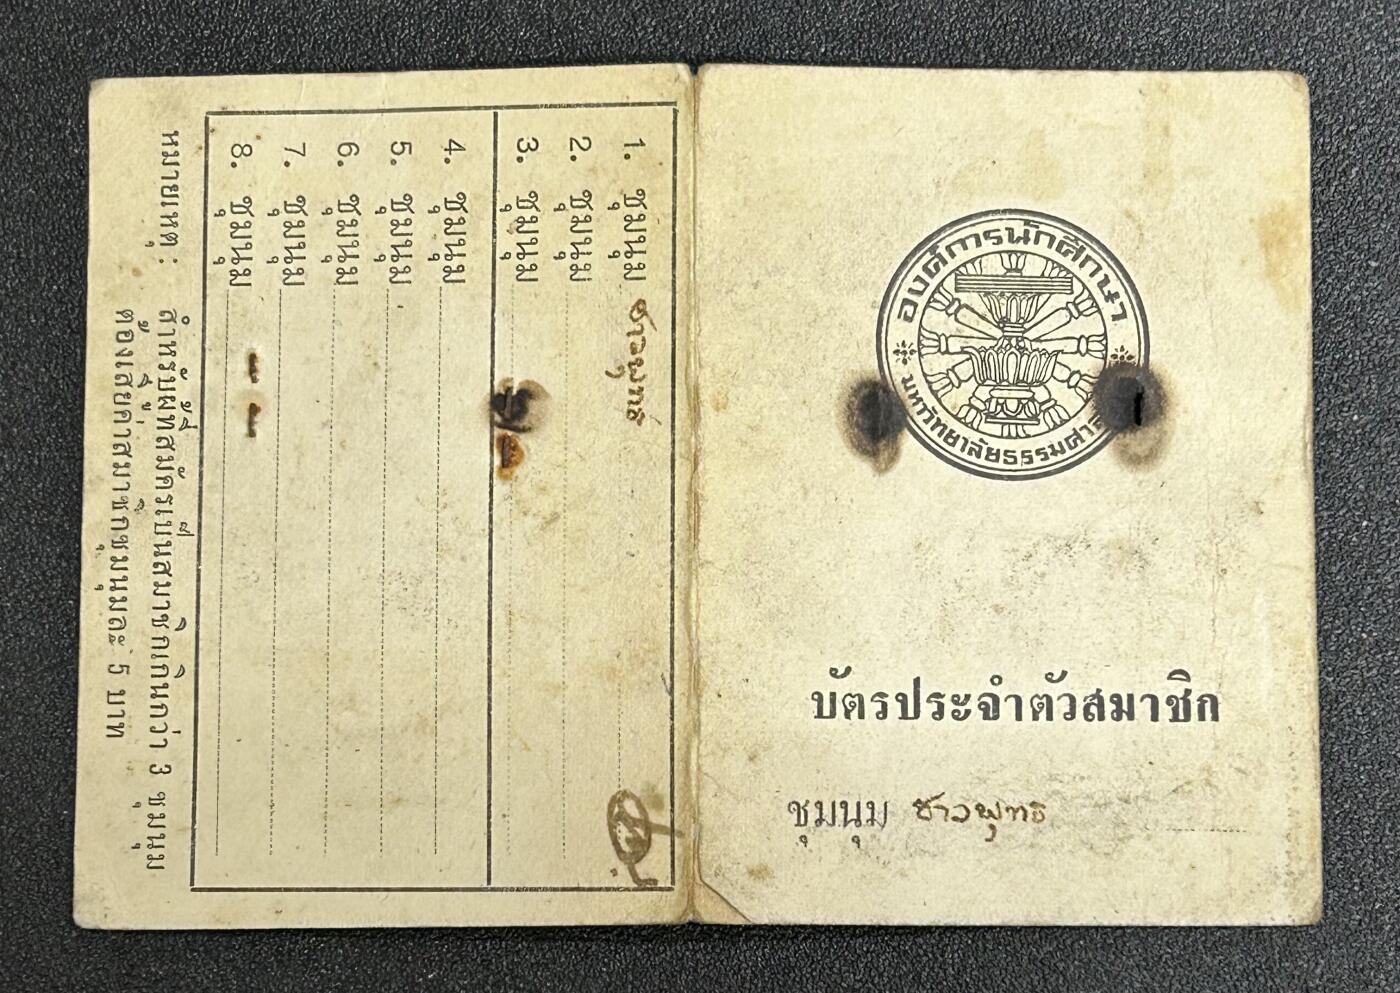 องค์การนักศึกษา
มหาวิทยาลัยธรรมศา
บัตรประจำตัวสมาชิก
ชุมนุม ชาวพุทธ
1. ชุมนุม ชาวพุทธ
2. ชุมนุม
3. ชุมนุม
4. ชุมนุม
5. ชุมนุม
6. ชุมนุม
7. ชุมนุม
8. ชุมนุม
หมายเหตุ : สำหรับผู้ที่สมัครเป็นสมาชิกเกินกว่า 3 ชุมนุม
ต้องเสียค่าสมาชิกชุมนุมละ 5 บาท